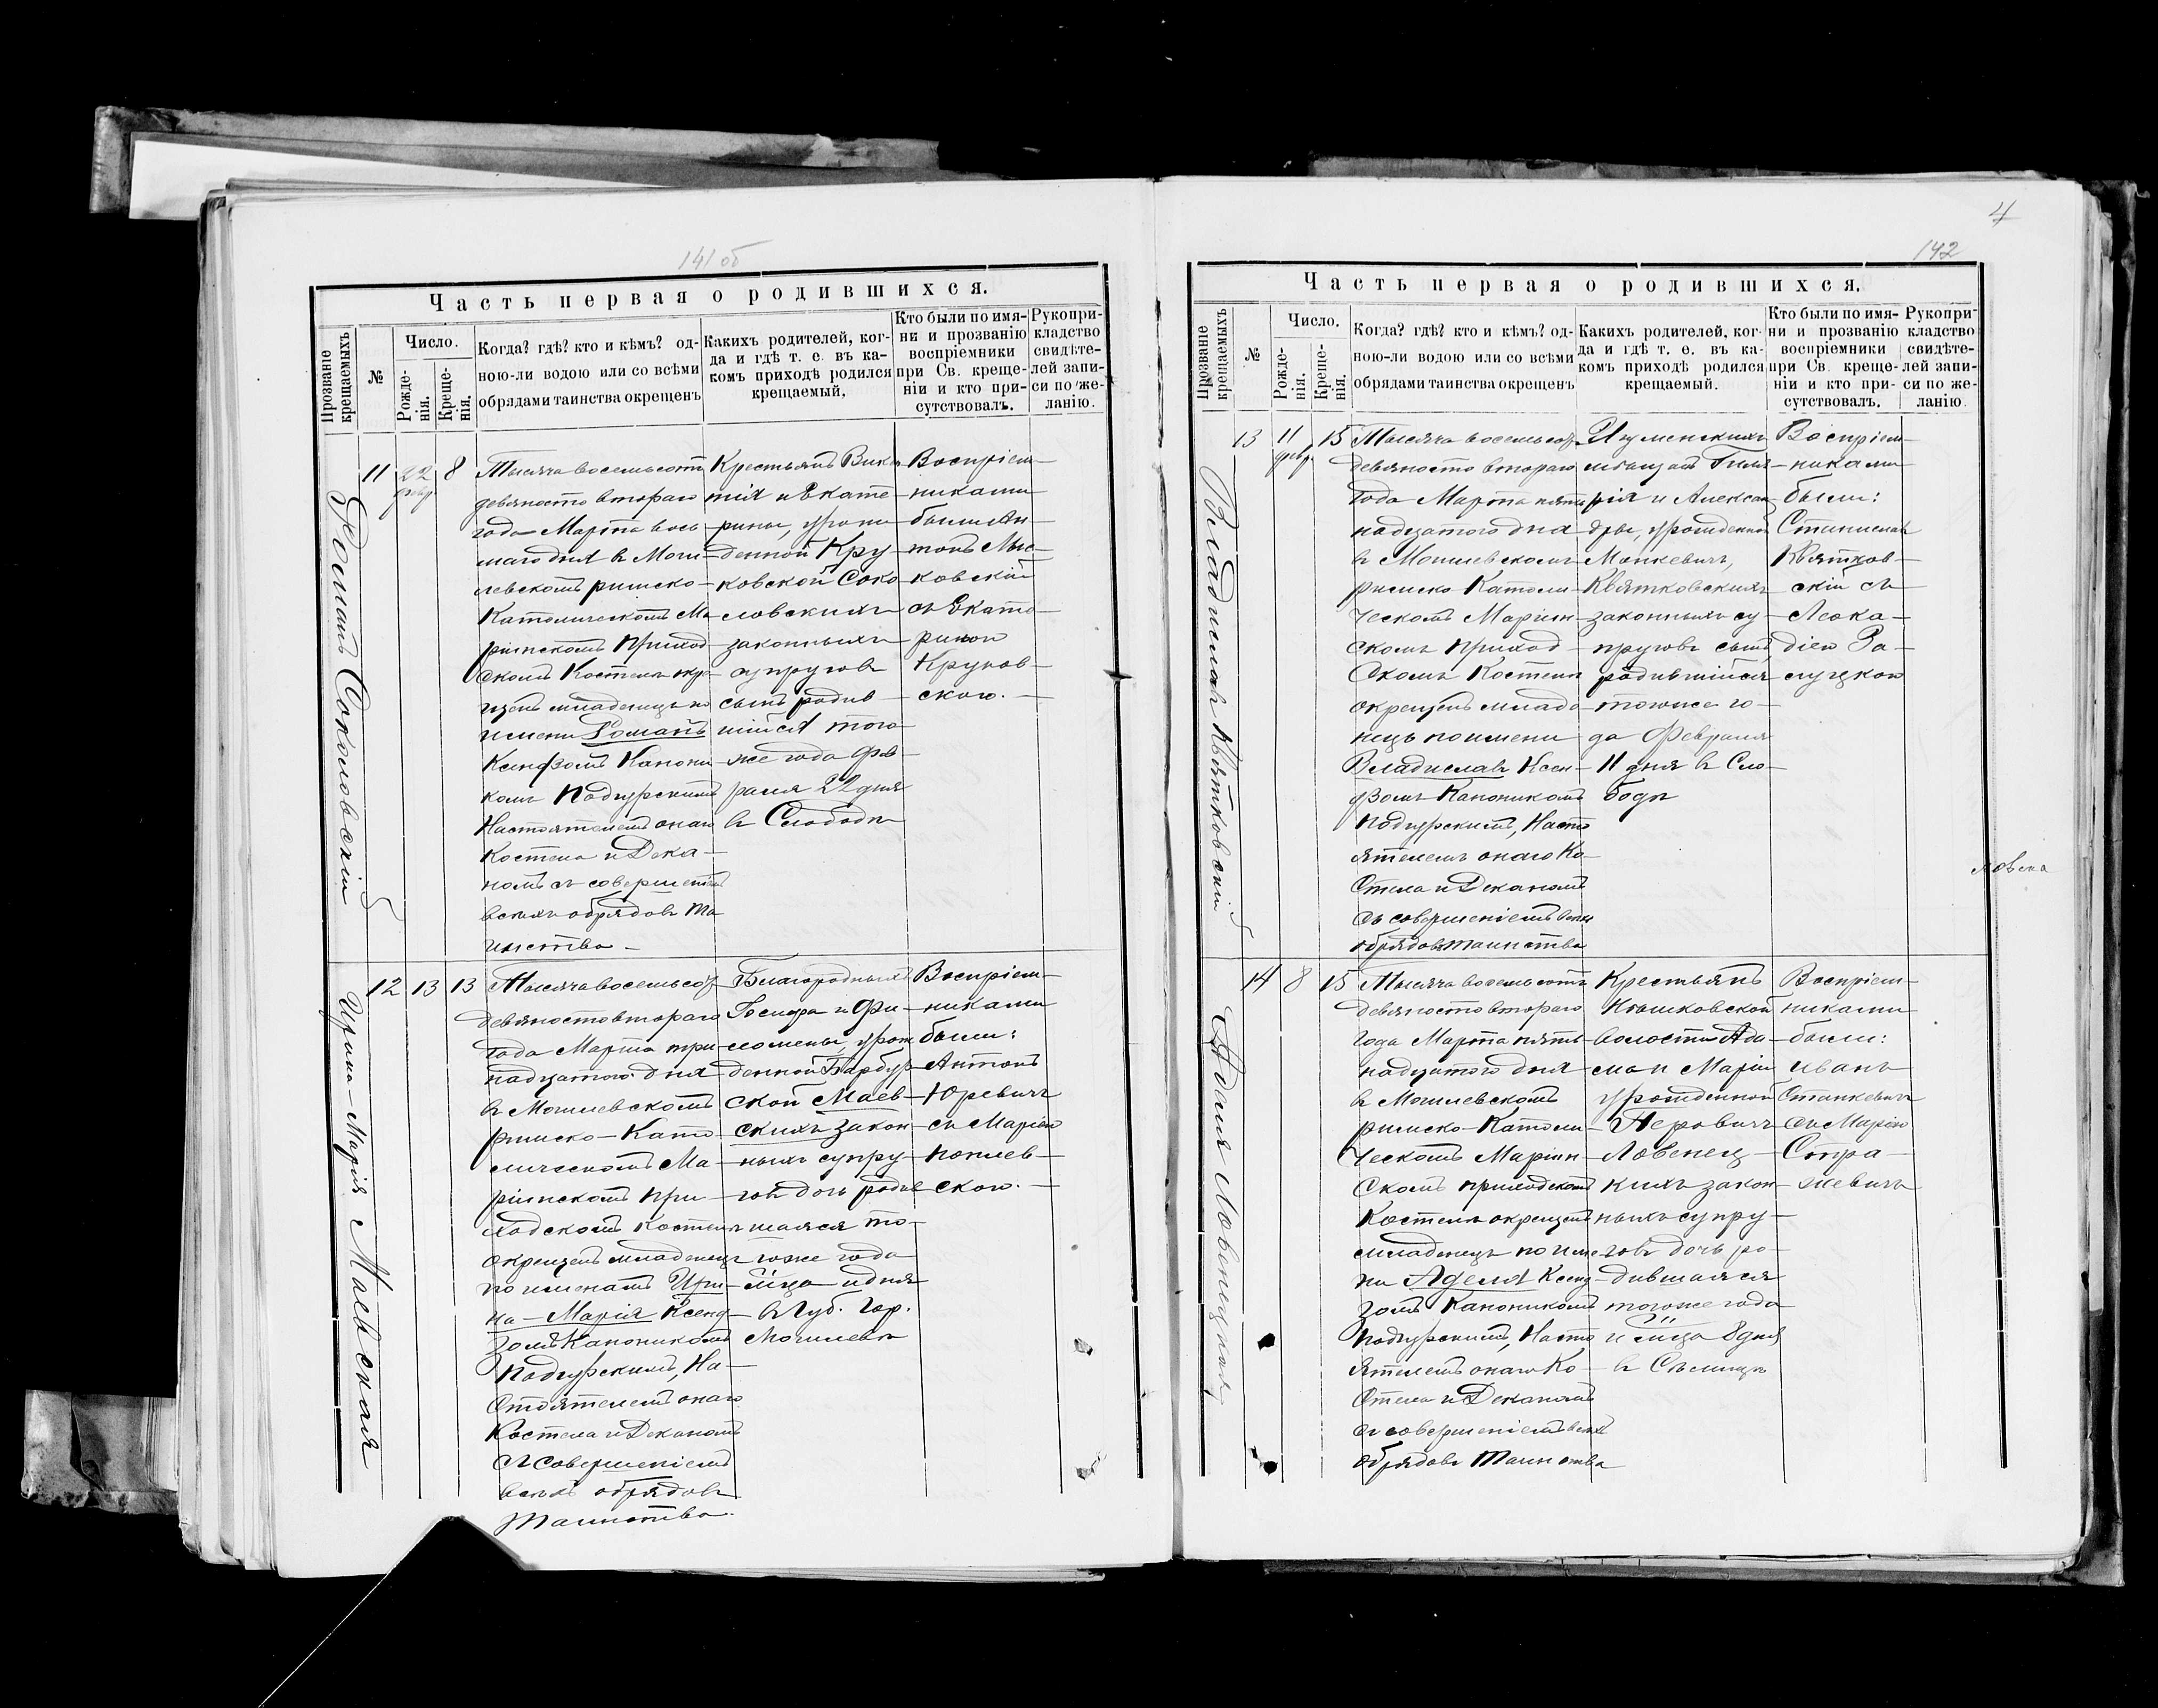 141 об
Часть первая о родившихся.
Прозваніе крещаемыхъ
№
Число.
Рожде-
нія.
Креще-
нія.
Когда? гдѣ? кто и кѣмъ? од-
ною-ли водою или со всѣми
обрядами таинства окрещенъ
Какихъ родителей, ког-
да и гдѣ т. е. въ ка-
комъ приходѣ родился
крещаемый.
Кто были по имя-
ни и прозванію
воспріемники
при Св. креще-
ніи и кто при-
сутствовалъ.
Рукопри-
кладство
свидѣте-
лей запи-
си по же-
ланію.
Романъ Соколовскій
11
22
февр
8
Тысяча восемьсотъ
девяносто втораго
года Марта вось
маго дня въ Моги-
левскомъ римско-
Католическомъ Ма
ріинскомъ Приход
скомъ Костелѣ окре
щенъ младенецъ по
имени Романъ
Ксендзомъ Канони
комъ Подгурскимъ
Настоятелемъ онаго
Костела и Дека-
номъ съ совершеніемъ
всѣхъ обрядовъ Та
инства-
Крестьянъ Вике
тія и Екате
рины, урож
денной Кру
ковской Соко
ловскихъ
законныхъ
супруговъ
сынъ родив
шійся того
же года Фев-
раля 22 дня
въ Слободѣ
Воспріем-
никами
были Ан-
тонъ
ковскій
съ Екате-
риной
Круков-
скою.-
Ирина-Марія Маевская
12
13
13
Тысяча восемьсотъ
девяносто втораго
года Марта три-
надцатого дня
въ Могилевскомъ
римско-Като-
лическомъ Ма-
ріинскомъ При-
ходскомъ Костелѣ
окрещенъ младенецъ
по именамъ Ири-
на-Марія Ксенд-
зомъ Каноникомъ
Подгурскимъ, На-
стоятелемъ онаго
Костела и Деканомъ
съ совершеніемъ
всѣхъ обрядовъ
Таинства.
Благородныхъ
и Фи-
ломены, урож
денной Барбур
ской Маев-
скихъ закон-
ныхъ супру
говъ дочь родив
шаяся то-
гоже года
м-ца и дня
въ Губ. Гор.
Могилевѣ
Воспріем-
никами
были:
Антонъ
Юревичъ
съ Маріею
скою.-
4
142
Часть первая о родившихся.
Прозваніе крещаемыхъ
№
Число.
Рожде-
нія.
Креще-
нія.
Когда? гдѣ? кто и кѣмъ? од-
ною-ли водою или со всѣми
обрядами таинства окрещенъ
Какихъ родителей, ког-
да и гдѣ т. е. въ ка-
комъ приходѣ родился
крещаемый.
Кто были по имя-
ни и прозванію
воспріемники
при Св. креще-
ніи и кто при-
сутствовалъ.
Рукопри-
кладство
свидѣте-
лей запи-
си по же-
ланію
Владиславъ Квятковскій
13
11
февр.
15
Тысяча восемьсотъ
девяносто втораго
года Марта пятн
надцатого дня
въ Могилевскомъ
римско Католи-
ческомъ Маріин-
скомъ Приход-
скомъ Костелѣ
окрещенъ младе-
нецъ по имени
Владиславъ Ксен-
дзомъ Каноникомъ
Подгурскимъ, Насто
ятелемъ онаго Ко-
стела и Деканомъ
съ совершеніемъ всѣхъ
обрядовъ таинства
Игуменскихъ
мѣщанъ Гиля-
рія и Алексан
дры, урожденной
Манкевичъ,
Квятковскихъ
законныхъ су-
пруговъ сынъ,
родившійся
тогоже го-
да Февраля
11 дня въ Сло-
бодѣ
Воспріем-
никами
были:
Станиславъ
Квятков-
скій съ
Леока-
діею За-
слуцкою
ловска
Аделя Ловенецкая
14
8
15
Тысяча восемьсотъ
девяносто втораго
Года Марта пять
надцатого дня
въ Могилевскомъ
римско-Католи-
ческомъ Маріин-
скомъ приходскомъ
Костелѣ окрещенъ
младенецъ по име
ни Аделя Ксенд-
зомъ Каноникомъ
Подгурскимъ, Насто
ятелемъ онаго Ко-
стела и Деканомъ
съ совершеніемъ всѣхъ
обрядовъ Таинства
Крестьянъ
волости Ада-
ма и Маріи
урожденной
Ловенец-
кихъ закон-
ныхъ супру-
говъ дочь ро-
дившаяся
тогоже года
и м-ца 8 дня
въ
Воспріем-
никами
были:
Иванъ
Станкевичъ
съ Маріею
Стра-
жевичъ